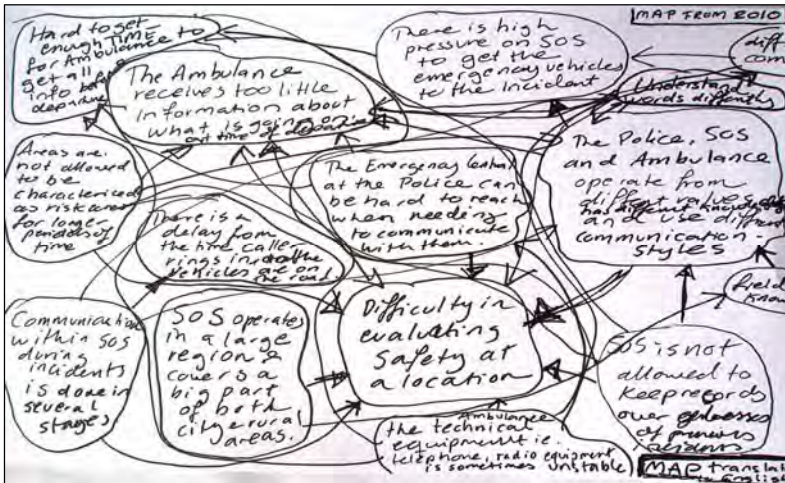 MAP FROM 2010
Hard to get
enough TIME
for Ambulance to
get all
info before
departure
The Ambulance
receives too little
information about
what is going on
at time of departure
There is high
pressure on SOS
to get the
emergency vehicles
to the incident
diff
com
Understand
words differently
Areas are
not allowed
to be
characterized
as risk areas
for longer
periods of
time
There is a
delay from
the time caller
rings in
vehicles are on
the road
The Emergency Central
at the Police can
be hard to reach
when needing
to communicate
with them.
The Police, SOS
and Ambulance
operate from
different values
has different knowledge
and use different
communication-
styles
field
know
Communication
within SOS
during
incidents
is done in
several
stages
SOS operates
in a large
region &
covers a
big part
of both
city & rural
areas.
Difficulty in
evaluating
Safety at
a location
SOS is not
allowed to
keep records
over
of previous
the technical Ambulance
equipment ie.
telephone, radio equipment
is sometimes unstable
MAP translat
to English